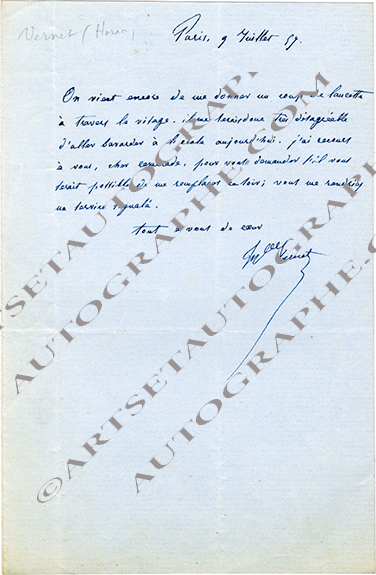 Vernet (Horace)
Paris, 9 Juillet 57.
On vient encore de me donner un coup de lancette
à travers le visage. il me serait donc très désagréable
d'aller bavarder à l'école aujourd'hui. j'ai recours
à vous, cher camarade, pour vous demander s'il vous
serait possible de me remplacer ce soir; vous me rendriez
un service signalé.
tout à vous de cœur
Vernet
©ARTSETAUTOGRAPHE.COM
ARTSETAUTOGRAPHE.COM
AUTOGRAPHE.COM